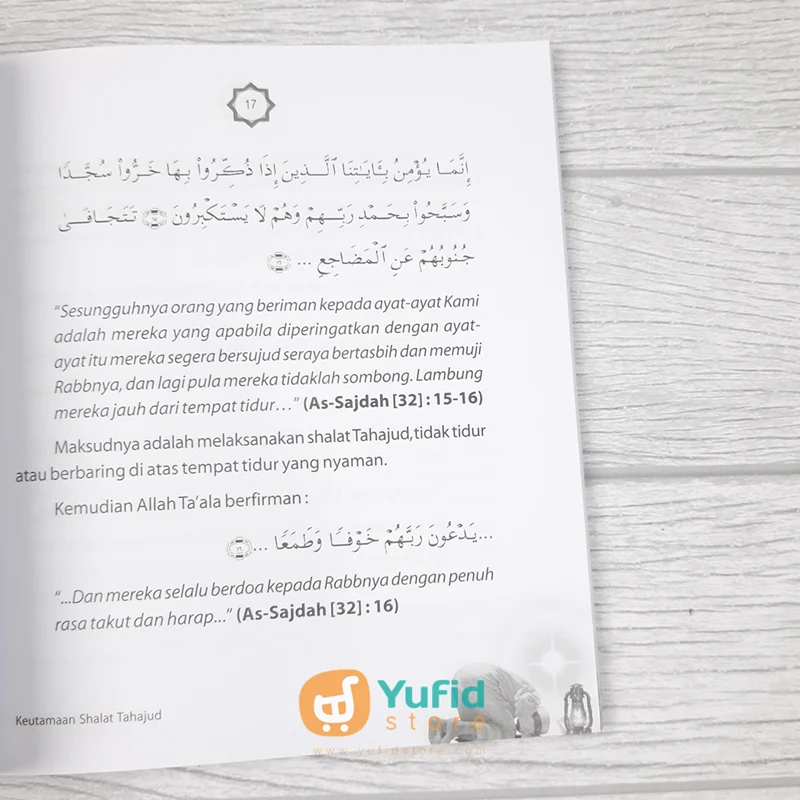 17
إِنَّمَا يُؤْمِنُ بِـَٔايَـٰتِنَا ٱلَّـذِينَ إِذَا ذُكِّرُوا۟ بِهَا خَرُّوا۟ سُجَّدًا
وَسَبَّحُوا۟ بِحَمْدِ رَبِّـهِمْ وَهُمْ لَا يَسْتَكْبِرُونَ ۝١٥ تَتَجَافَىٰ
جُنُوبُهُمْ عَنِ ٱلْمَضَاجِعِ ... ۝١٦
“Sesungguhnya orang yang beriman kepada ayat-ayat Kami
adalah mereka yang apabila diperingatkan dengan ayat-
ayat itu mereka segera bersujud seraya bertasbih dan memuji
Rabbnya, dan lagi pula mereka tidaklah sombong. Lambung
mereka jauh dari tempat tidur…” (As-Sajdah [32] : 15-16)
Maksudnya adalah melaksanakan shalat Tahajud, tidak tidur
atau berbaring di atas tempat tidur yang nyaman.
Kemudian Allah Ta’ala berfirman :
...يَدْعُونَ رَبَّهُمْ خَوْفًا وَطَمَعًا ... ۝١٦
“...Dan mereka selalu berdoa kepada Rabbnya dengan penuh
rasa takut dan harap...” (As-Sajdah [32] : 16)
Keutamaan Shalat Tahajud
Yufid
store
www.yufidstore.com